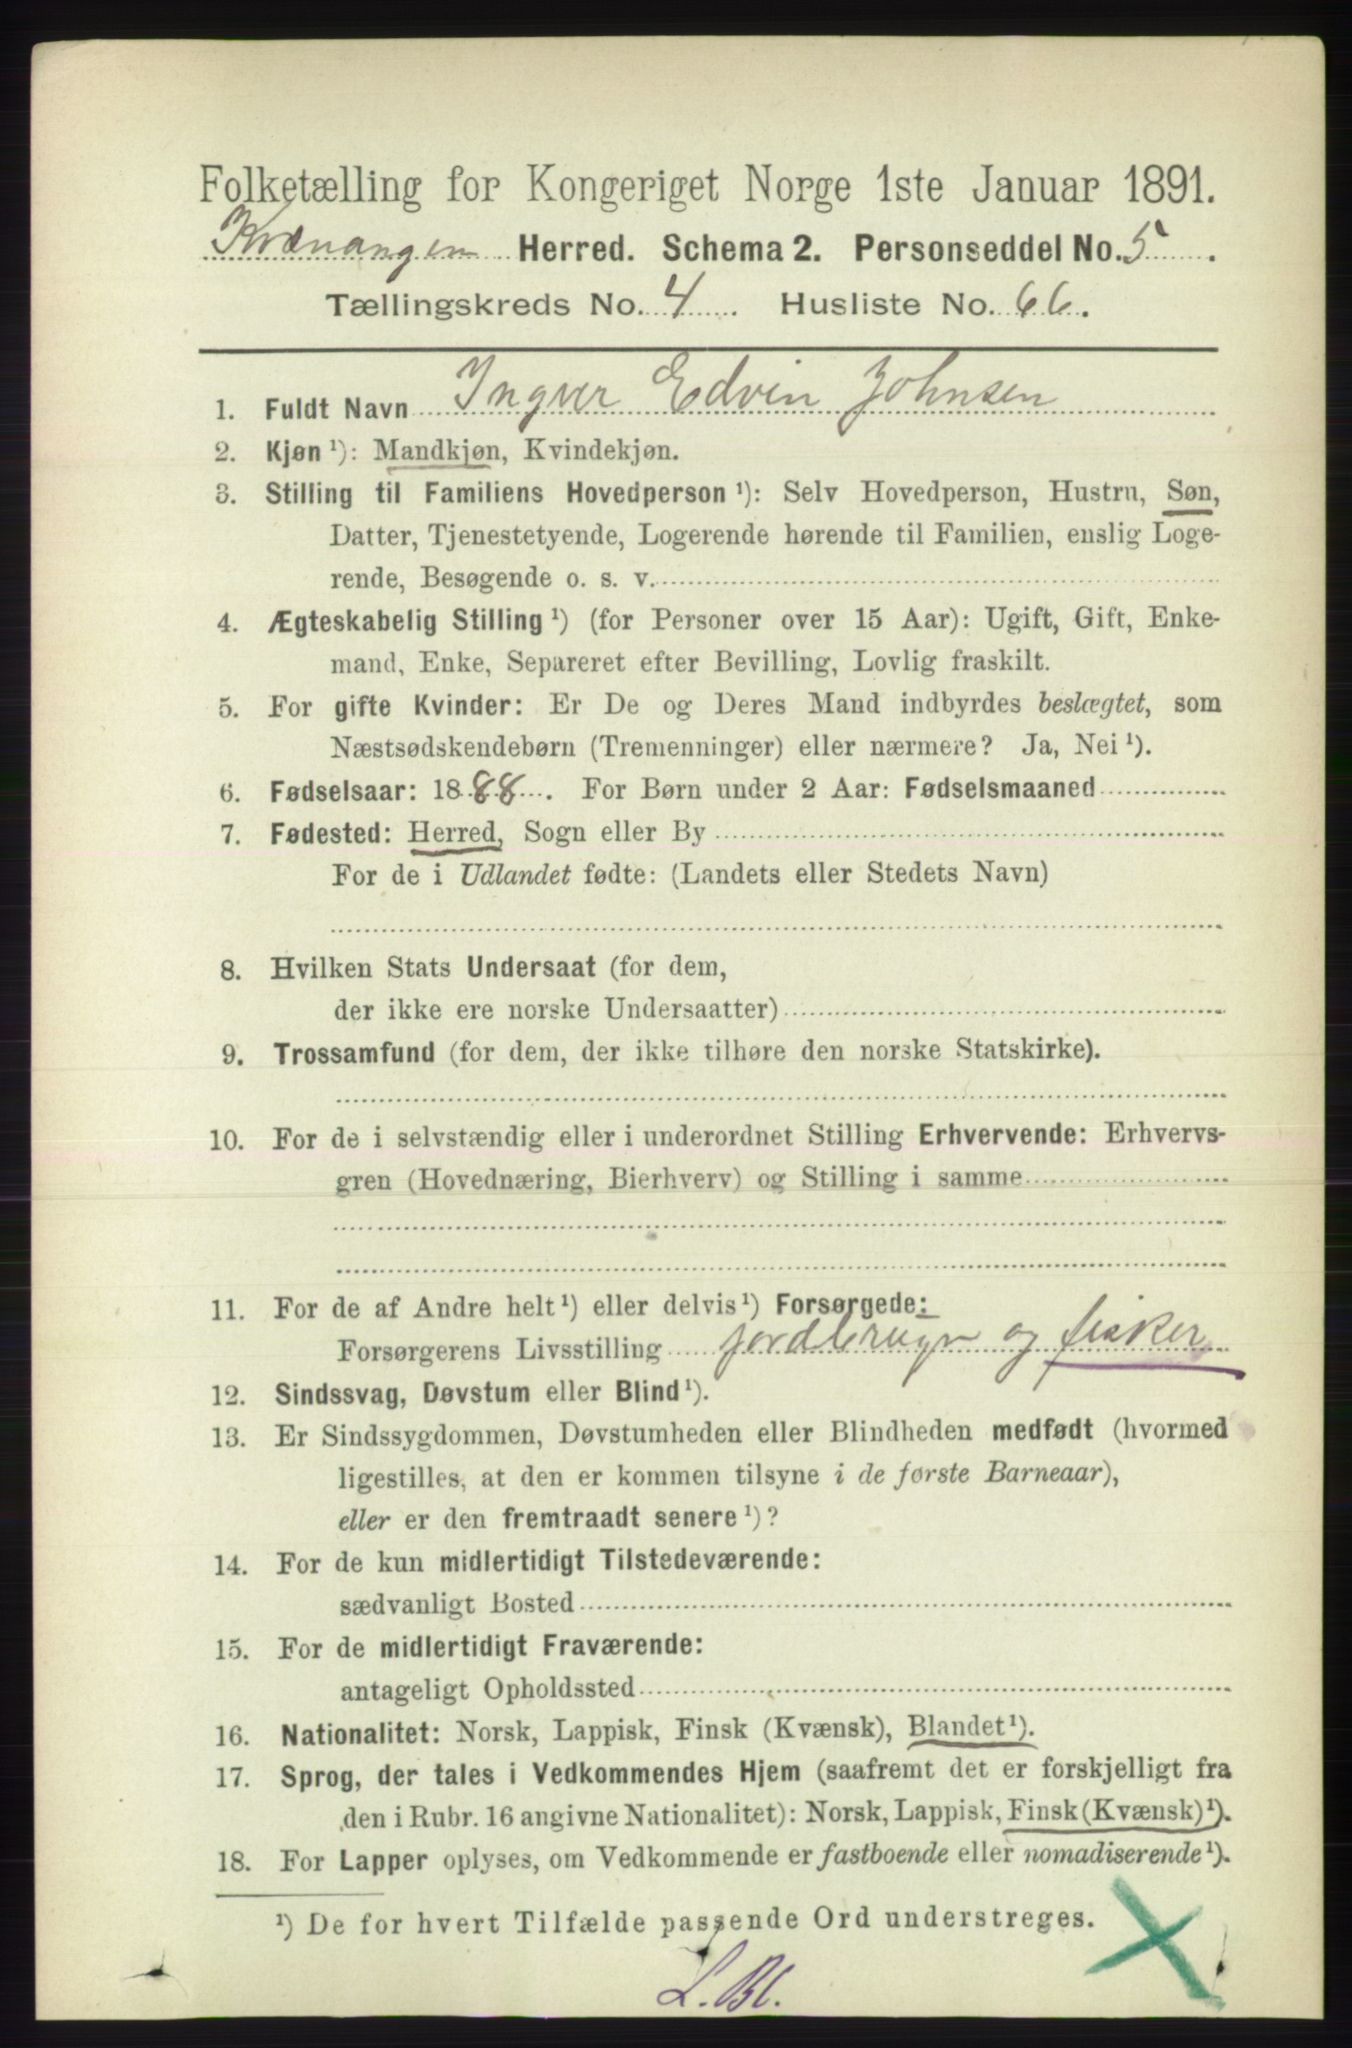 Folketælling for Kongeriget Norge 1ste Januar 1891.
Kvænangen Herred. Schema 2. Personseddel No. 5.
Tællingskreds No. 4. Husliste No. 66.
1. Fuldt Navn Ingver Edvin Johnsen
2. Kjøn ¹): Mandkjøn, Kvindekjøn.
3. Stilling til Familiens Hovedperson ¹): Selv Hovedperson, Hustru, Søn,
Datter, Tjenestetyende, Logerende hørende til Familien, enslig Loge-
rende, Besøgende o. s. v.
4. Ægteskabelig Stilling ¹) (for Personer over 15 Aar): Ugift, Gift, Enke-
mand, Enke, Separeret efter Bevilling, Lovlig fraskilt.
5. For gifte Kvinder: Er De og Deres Mand indbyrdes beslægtet, som
Næstsødskendebørn (Tremenninger) eller nærmere? Ja, Nei ¹).
6. Fødselsaar: 1888. For Børn under 2 Aar: Fødselsmaaned
7. Fødested: Herred, Sogn eller By
For de i Udlandet fødte: (Landets eller Stedets Navn)
8. Hvilken Stats Undersaat (for dem,
der ikke ere norske Undersaatter)
9. Trossamfund (for dem, der ikke tilhøre den norske Statskirke).
10. For de i selvstændig eller i underordnet Stilling Erhvervende: Erhvervs-
gren (Hovednæring, Bierhverv) og Stilling i samme
11. For de af Andre helt ¹) eller delvis ¹) Forsørgede:
Forsørgerens Livsstilling jordbrugr og fisker
12. Sindssvag, Døvstum eller Blind ¹).
13. Er Sindssygdommen, Døvstumheden eller Blindheden medfødt (hvormed
ligestilles, at den er kommen tilsyne i de første Barneaar),
eller er den fremtraadt senere ¹)?
14. For de kun midlertidigt Tilstedeværende:
sædvanligt Bosted
15. For de midlertidigt Fraværende:
antageligt Opholdssted
16. Nationalitet: Norsk, Lappisk, Finsk (Kvænsk), Blandet ¹).
17. Sprog, der tales i Vedkommendes Hjem (saafremt det er forskjelligt fra
den i Rubr. 16 angivne Nationalitet): Norsk, Lappisk, Finsk (Kvænsk) ¹).
18. For Lapper oplyses, om Vedkommende er fastboende eller nomadiserende ¹).
¹) De for hvert Tilfælde passende Ord understreges.
L. Bl.